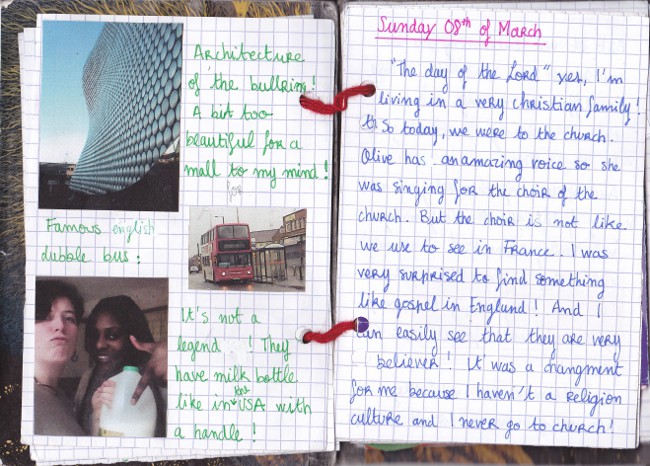 Architecture
of the bullring!
A bit too
beautiful for a
mall to my mind!
for
Famous english
dubble bus:
It's not a
legend !They
have milk bottle
like in the USA with
a handle!
Sunday 08th of March
"The day of the Lord" yes, I'm
living in a very christian family!
So today, we were to the church.
Olive has an amazing voice so she
was singing for the choir of the
church. But the choir is not like
we use to see in France. I was
very surprised to find something
like gospel in England! And I
can easily see that they are very
believer! It was a changment
for me because I haven't a religion
culture and I never go to church!